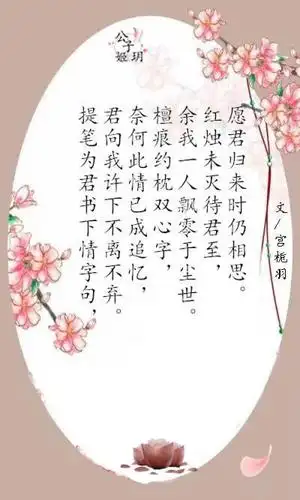 公子姬玥
提笔为君书下情字句，
君向我许下不离不弃。
奈何此情已成追忆，
檀痕约枕双心字，
余我一人飘零于尘世。
红烛未灭待君至，
愿君归来时仍相思。
文/宫栀羽